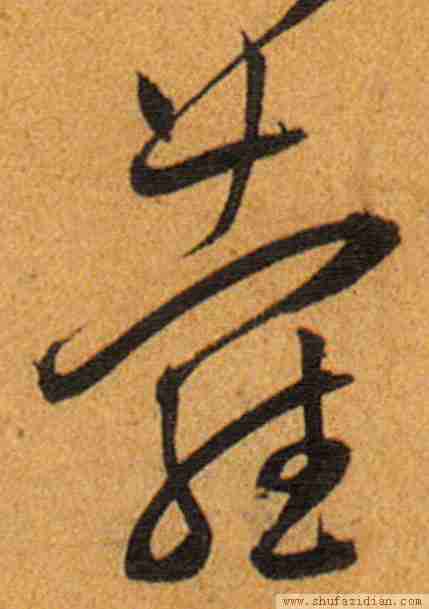 蘿
www.shufazidian.com